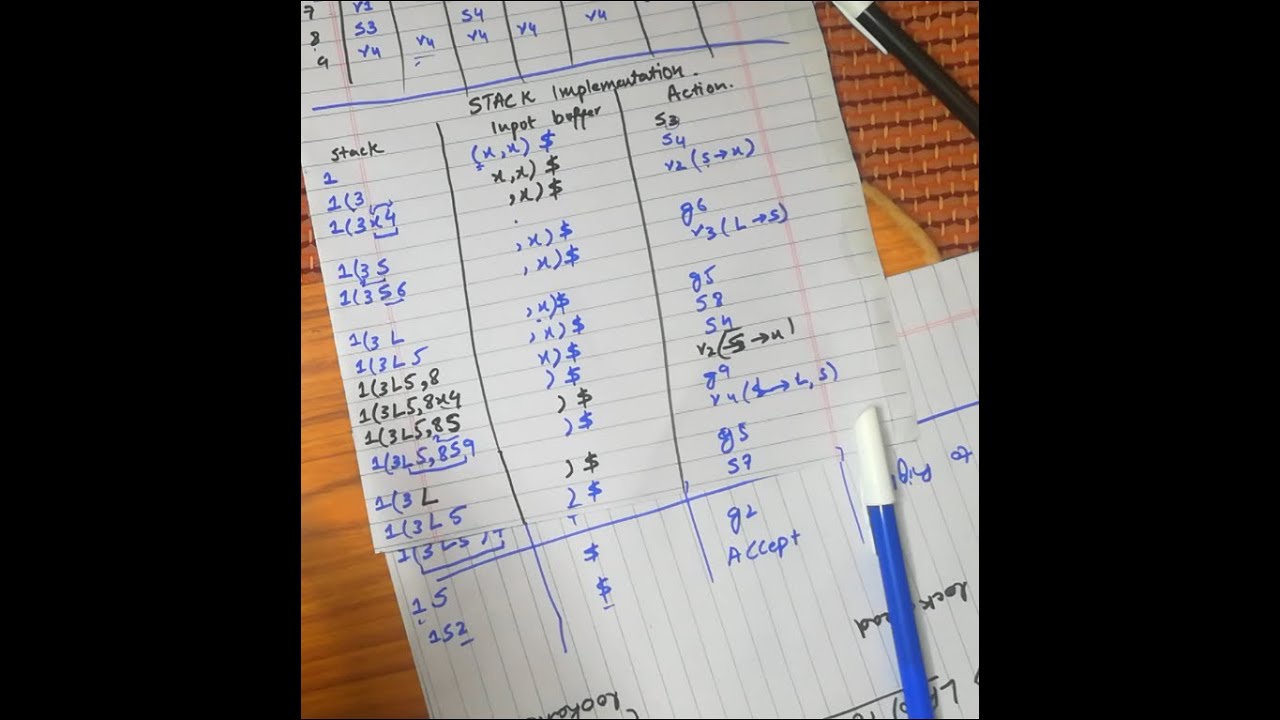 7 r1 S4 r4
8 S3 r4 r4
9 r4 r4
STACK Implementation.
Stack Input buffer Action.
1 (x,x) $ S3
1(3 x,x) $ S4
1(3x4 ,x) $ r2 (S→x)
1(3 S ,x) $ g6
1(3 S 6 ,x) $ r3 (L→S)
1(3 L ,x)$ g5
1(3 L 5 ,x) $ S8
1(3L5,8 x) $ S4
1(3L5,8x4 ) $ r2(S→x)
1(3L5,8S ) $ g9
1(3L5,8S9 ) $ r4 (L→L,S)
1(3 L ) $ g5
1(3 L 5 ) $ S7
1(3L5 $ g2
1 S $ Accept
1S2